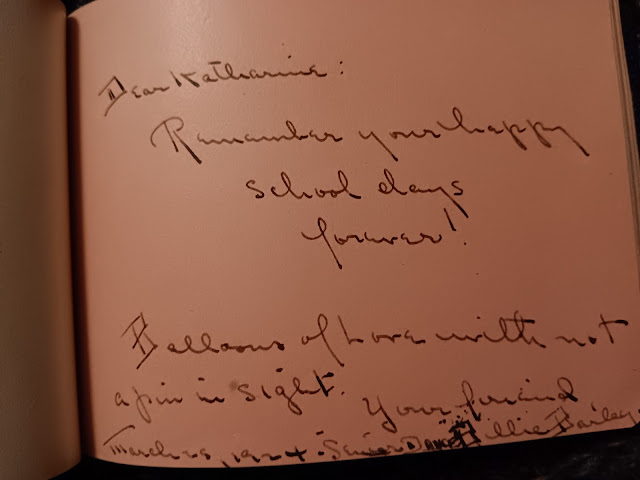 Dear Katharine:
Remember your happy
school days
forever!
Balloons of Love with not
a pin in sight.
Your friend
March 1924. Senior Dance Billie Bailey